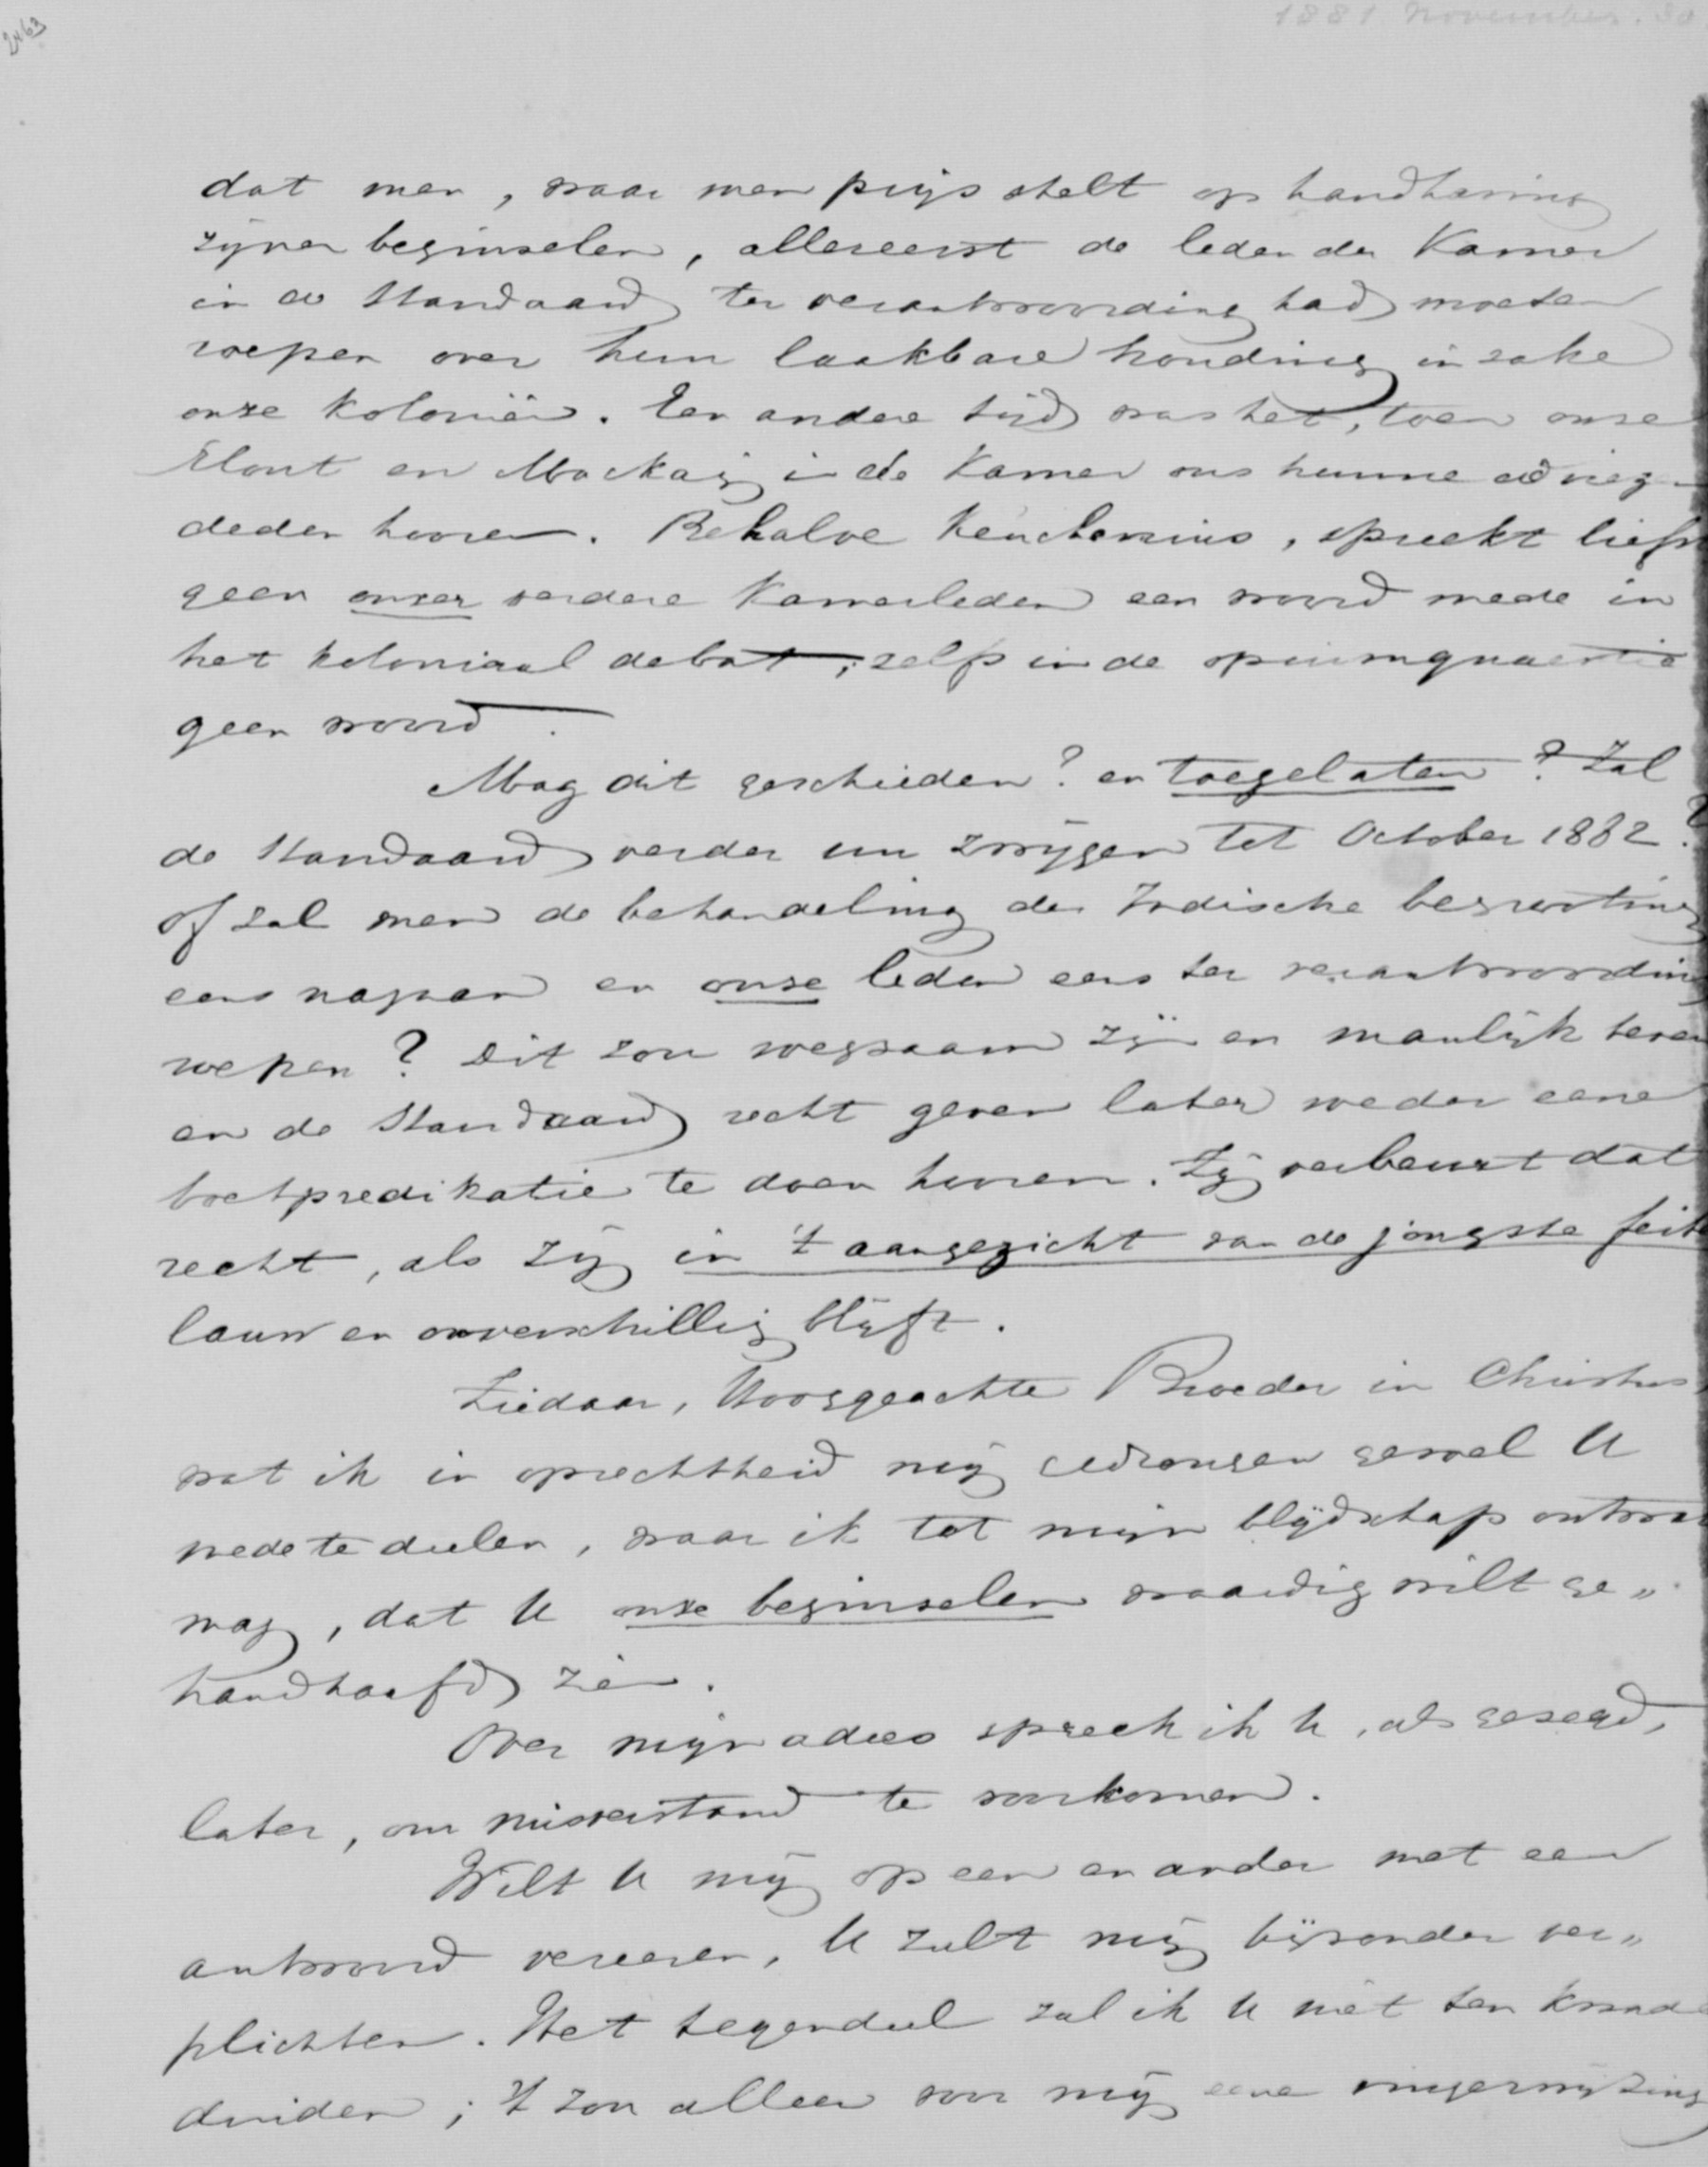 2463
1881 November. 30
dat men, waar men prijs stelt op handhaving
zijner beginselen, allereerst de leden der Kamer
in de Standaard ter verantwoording had moeten
roepen over hun laakbare houding in zake
onze koloniën. Een andere tijd was het, toen onze
Elout en Mackaij in de Kamer ons hunne adviezen
deden hooren. Behalve Keuchenius, spreekt liefst
geen onzer verdere Kamerleden een woord mede in
het koloniaal debat; zelfs in de opiumquaestie
geen woord.
Mag dit geschieden? en toegelaten? Zal
de Standaard verder nu zwijgen tot October 1882?
of zal men de behandeling der Indische begrooting
eens nagaan en onze leden eens ter verantwoording
roepen? Dit zou wegzaam zijn en manlijk tevens
en de Standaard recht geven later weder eene
boetpredikatie te doen hooren. Zij verbeurt dat
recht, als zij in 't aangezicht van de jongste feiten
lauw en onverschillig blijft.
Ziedaar, Hooggeachte Broeder in Christus
wat ik in oprechtheid mij gedrongen gevoel U
mede te deelen, waar ik tot mijn blijdschap ontwaren
mag, dat U onze beginselen waardig wilt ge„
handhaafd zien.
Over mijn adres spreek ik U, als gezegd,
later, om misverstand te voorkomen.
Wilt U mij op een en ander met een
antwoord vereeren, U zult mij bijzonder ver„
plichten. Het tegendeel zal ik U niet ten kwade
duiden; 't zou alleen voor mij eene vingerwijzing